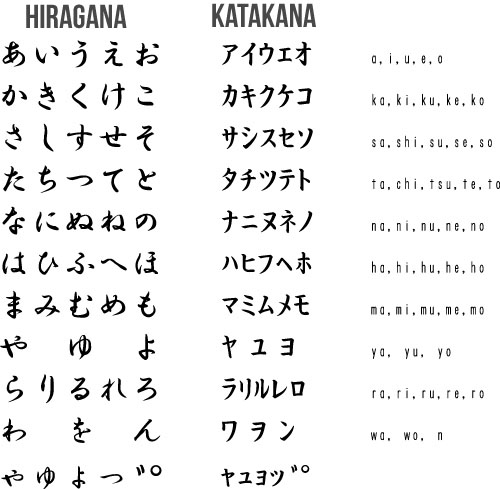 HIRAGANA KATAKANA
あいうえお アイウエオ a,i,u,e,o
かきくけこ カキクケコ ka,ki,ku,ke,ko
さしすせそ サシスセソ sa,shi,su,se,so
たちつてと タチツテト ta,chi,tsu,te,to
なにぬねの ナニヌネノ na,ni,nu,ne,no
はひふへほ ハヒフヘホ ha,hi,hu,he,ho
まみむめも マミムメモ ma,mi,mu,me,mo
や ゆ よ ヤ ユ ヨ ya, yu, yo
らりるれろ ラリルレロ ra,ri,ru,re,ro
わ を ん ワ ヲ ン wa, wo, n
ゃゅょっ゛゜ ャュョッ゛゜